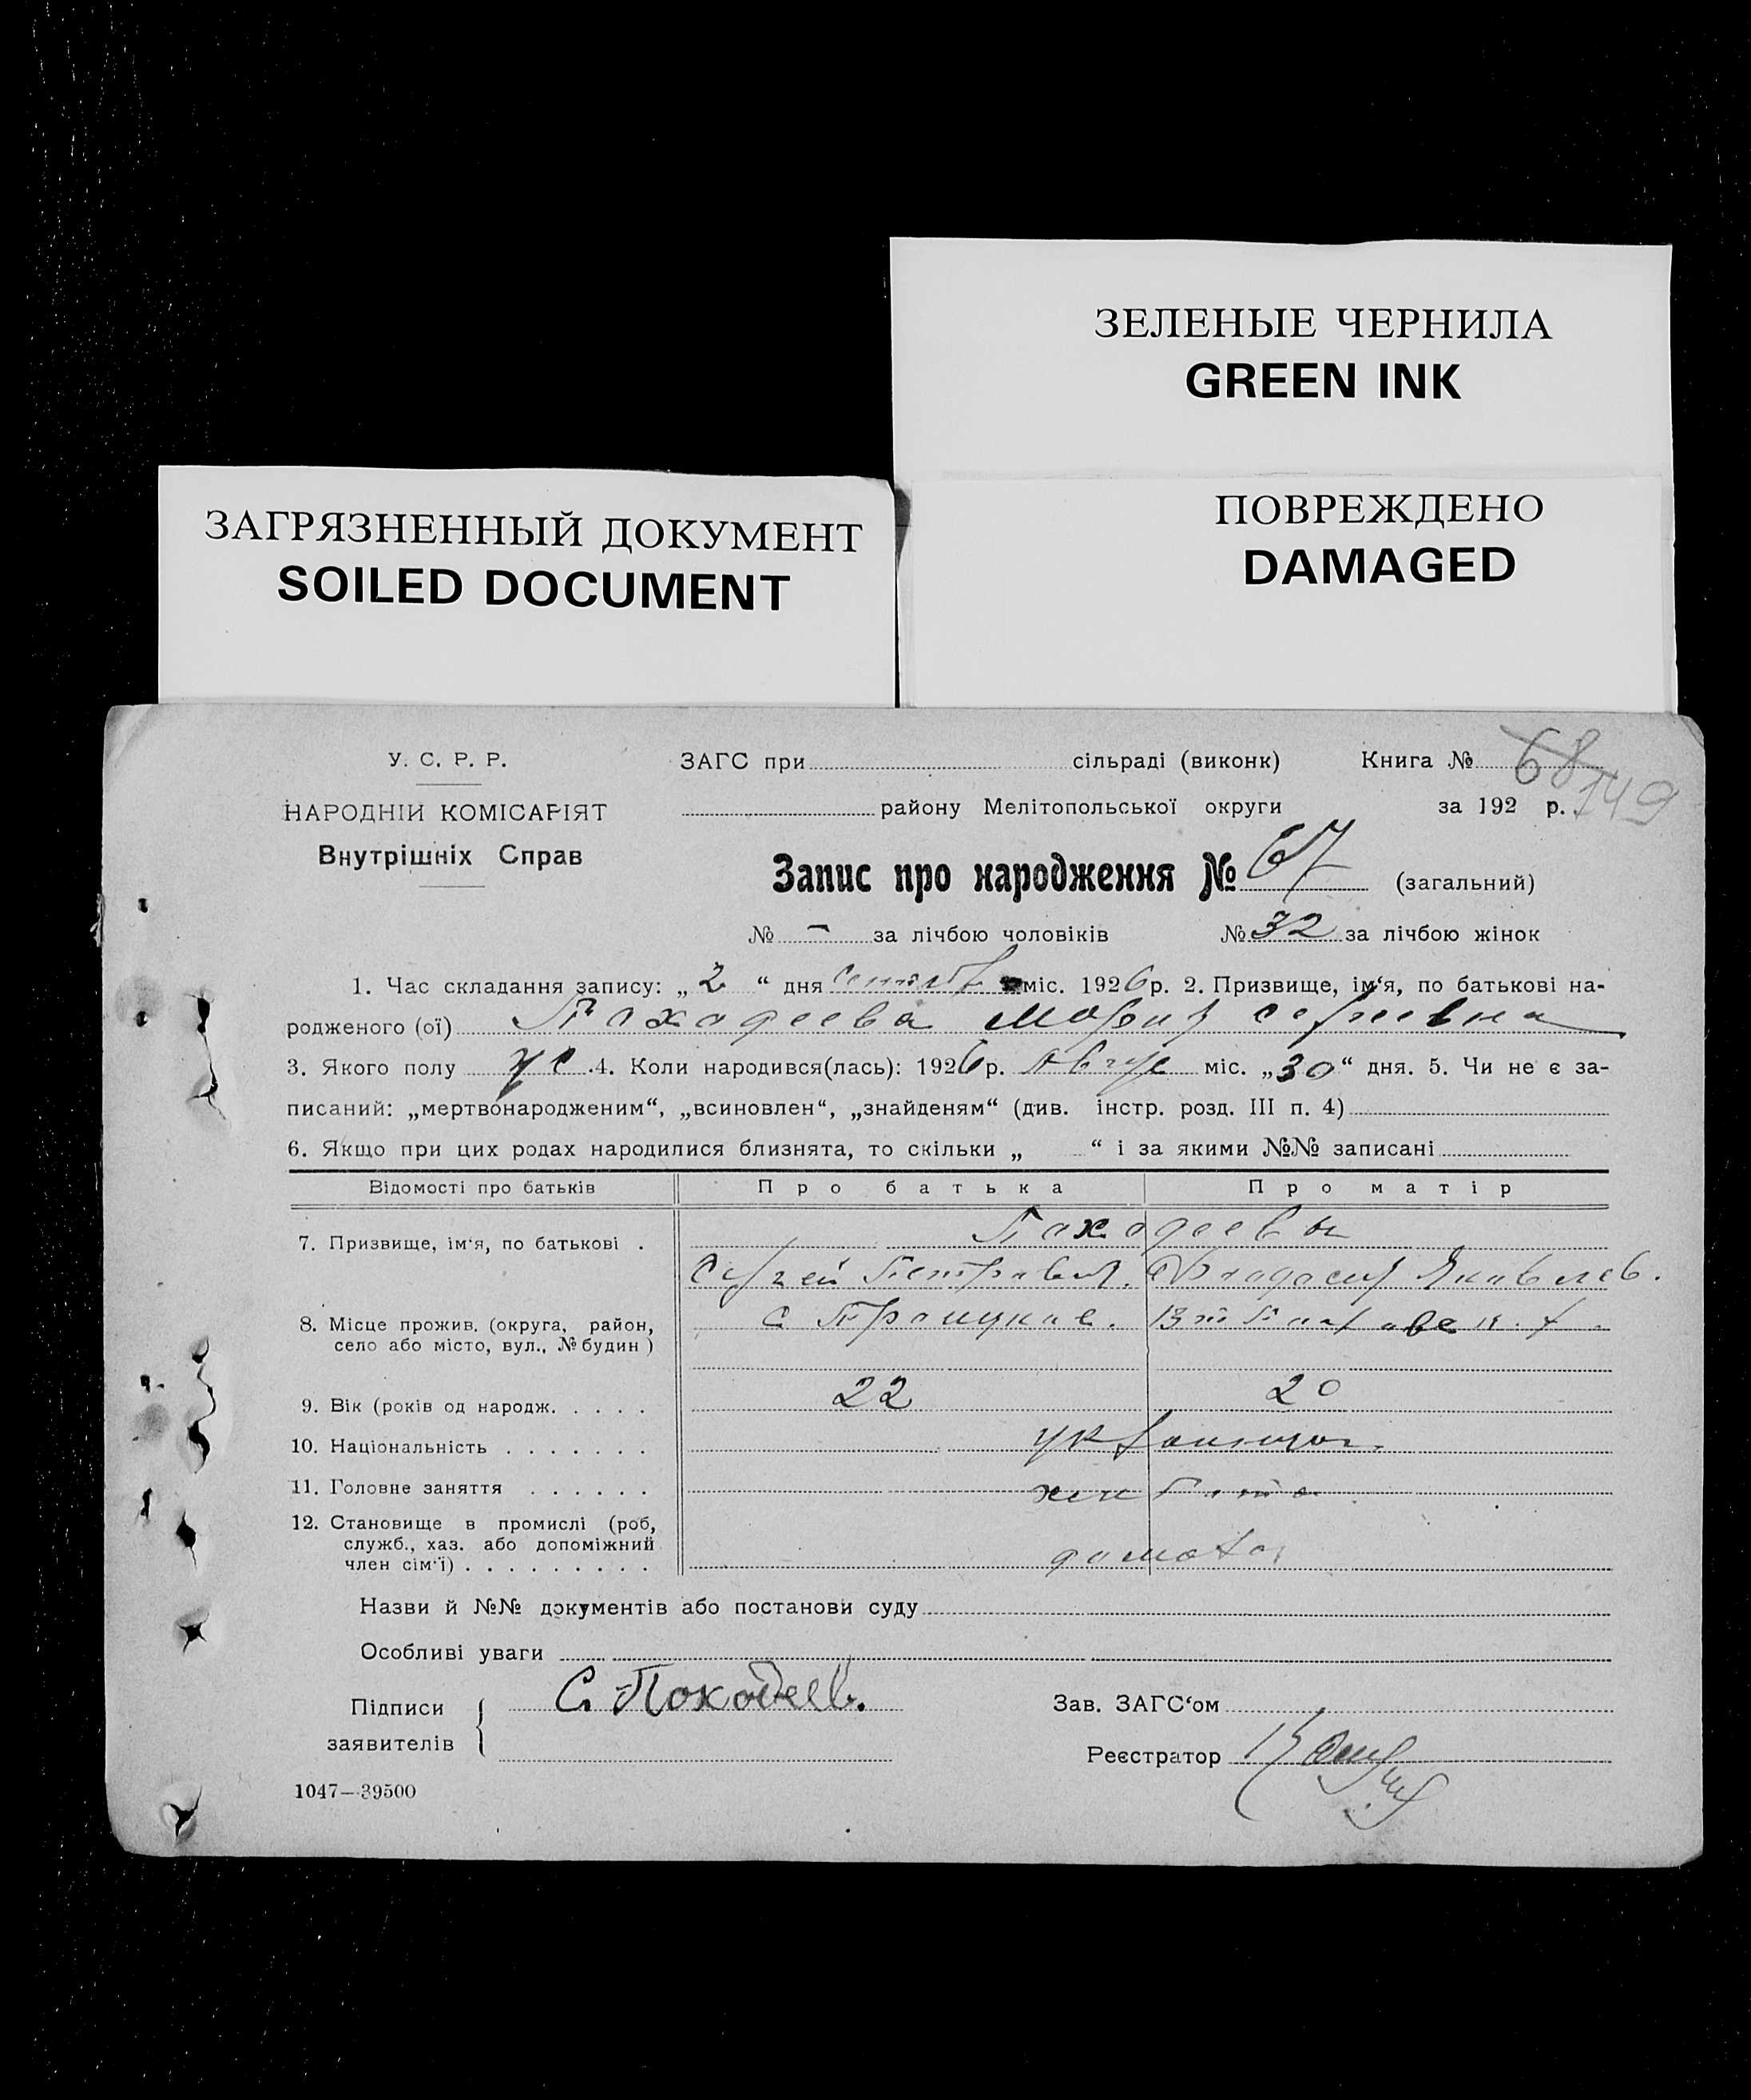 ЗЕЛЕНЫЕ ЧЕРНИЛА
GREEN INK
ПОВРЕЖДЕНО
DAMAGED
ЗАГРЯЗНЕННЫЙ ДОКУМЕНТ
SOILED DOCUMENT
У. С. Р. Р.
НАРОДНІЙ КОМІСАРІЯТ
Внутрішніх Справ
ЗАГС при сільраді (виконк) Книга № 68
149
району Мелітопольської округи за 192 р.
Запис про народження № 67 (загальний)
№ - за лічбою чоловіків № 32 за лічбою жінок
1. Час складання запису: „ 2 “ дня міс. 1926 р. 2. Призвище, ім‘я, по батькові на-
родженого (ої) Пахадеева Мария
3. Якого полу 4. Коли народився(лась): 1926 р. Авгус міс. „30“ дня. 5. Чи не є за-
писаний: „мертвонародженим“, „всиновлен“, „знайденям“ (див. інстр. розд. III п. 4)
6. Якщо при цих родах народилися близнята, то скільки „ “ і за якими №№ записані
Відомості про батьків Про батька Про матір
7. Призвище, ім‘я, по батькові . Пахадеевы
Сергей Яковлев.
8. Місце прожив. (округа, район,
село або місто, вул., № будин)
с Троицкае.
9. Вік (років од народж. . . . . 22 20
10. Національність . . . . . . .
11. Головне заняття . . . . . .
12. Становище в промислі (роб,
служб., хаз. або допоміжний
член сім‘ї) . . . . . . . . .
Назви й №№ документів або постанови суду
Особливі уваги
Підписи
заявителів
С. Походеев.
Зав. ЗАГС‘ом
Реєстратор
1047—39500